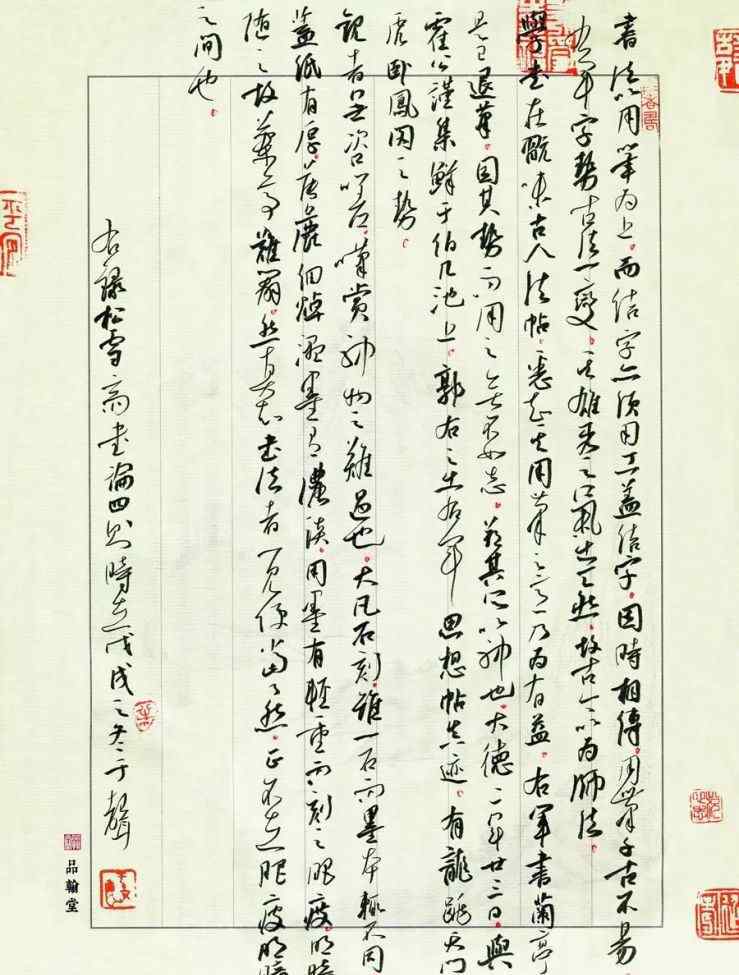 書法以用筆為上。而結字亦須用工。蓋結字。因時相傳。用筆千古不易
右軍字勢古法一變。其雄秀之氣出天然。故古今以為師法。
學書在玩味古人法帖。悉知其用筆之意乃為有益。右軍書蘭亭
是已退筆。因其勢而用之無不如志。茲其所以神也。大德二年廿三日。與
霍公謹集鮮于伯几池上。郭右之出右軍思想帖真迹。有龍跳天門
虎臥鳳閣之勢。
觀者無咨嗟。嘆賞神物之難遇也。大凡石刻。雖一石而墨本輒不同
蓋紙有厚薄麤細燥濕墨有濃淡。用墨有輕重而刻之肥瘦。明暗
隨之故蘭亭難辨。然真知書法者一見便當了然。正不在肥瘦明暗
之間也。
右錄松雪齋書論四則時在戊戌之冬于聲
品翰堂